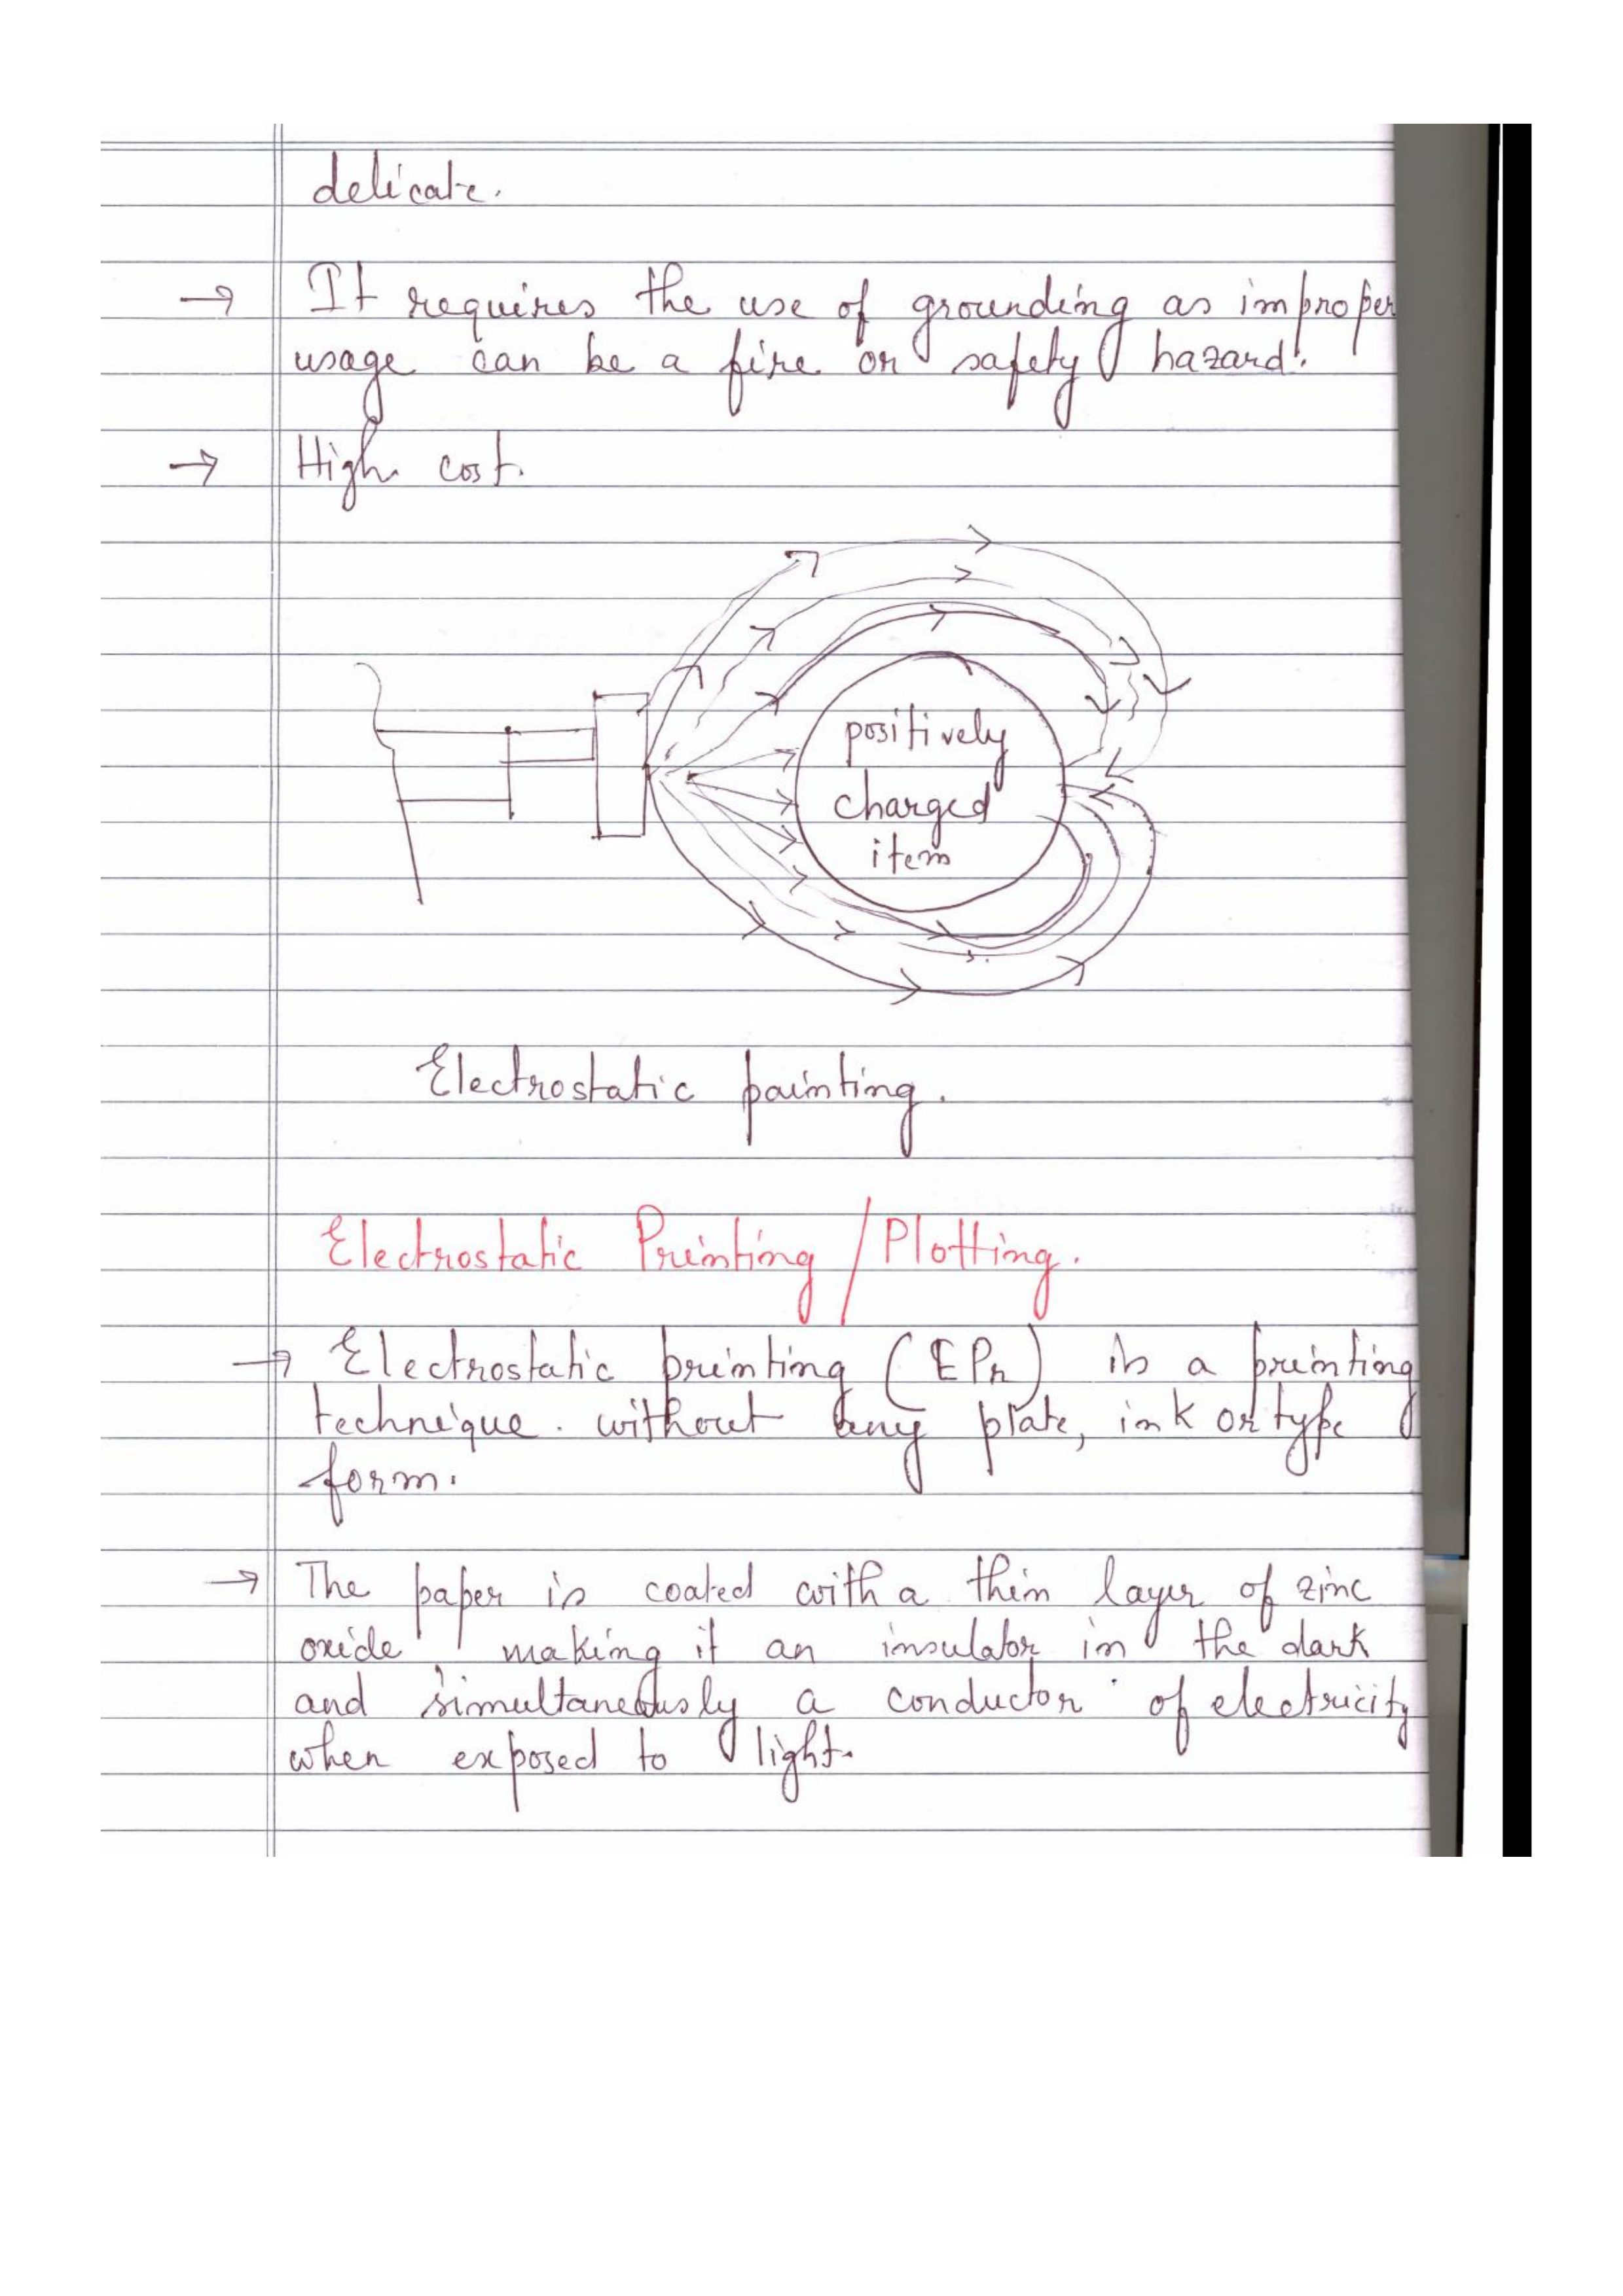 delicate.
→ It requires the use of grounding as improper
usage can be a fire or safety hazard.
→ High cost.
positively
charged
item
Electrostatic painting.
Electrostatic Printing / Plotting.
→ Electrostatic printing (EPr) is a printing
technique. without any plate, ink or type
form.
→ The paper is coated with a thin layer of zinc
oxide making it an insulator in the dark
and simultaneously a conductor of electricity
when exposed to light.